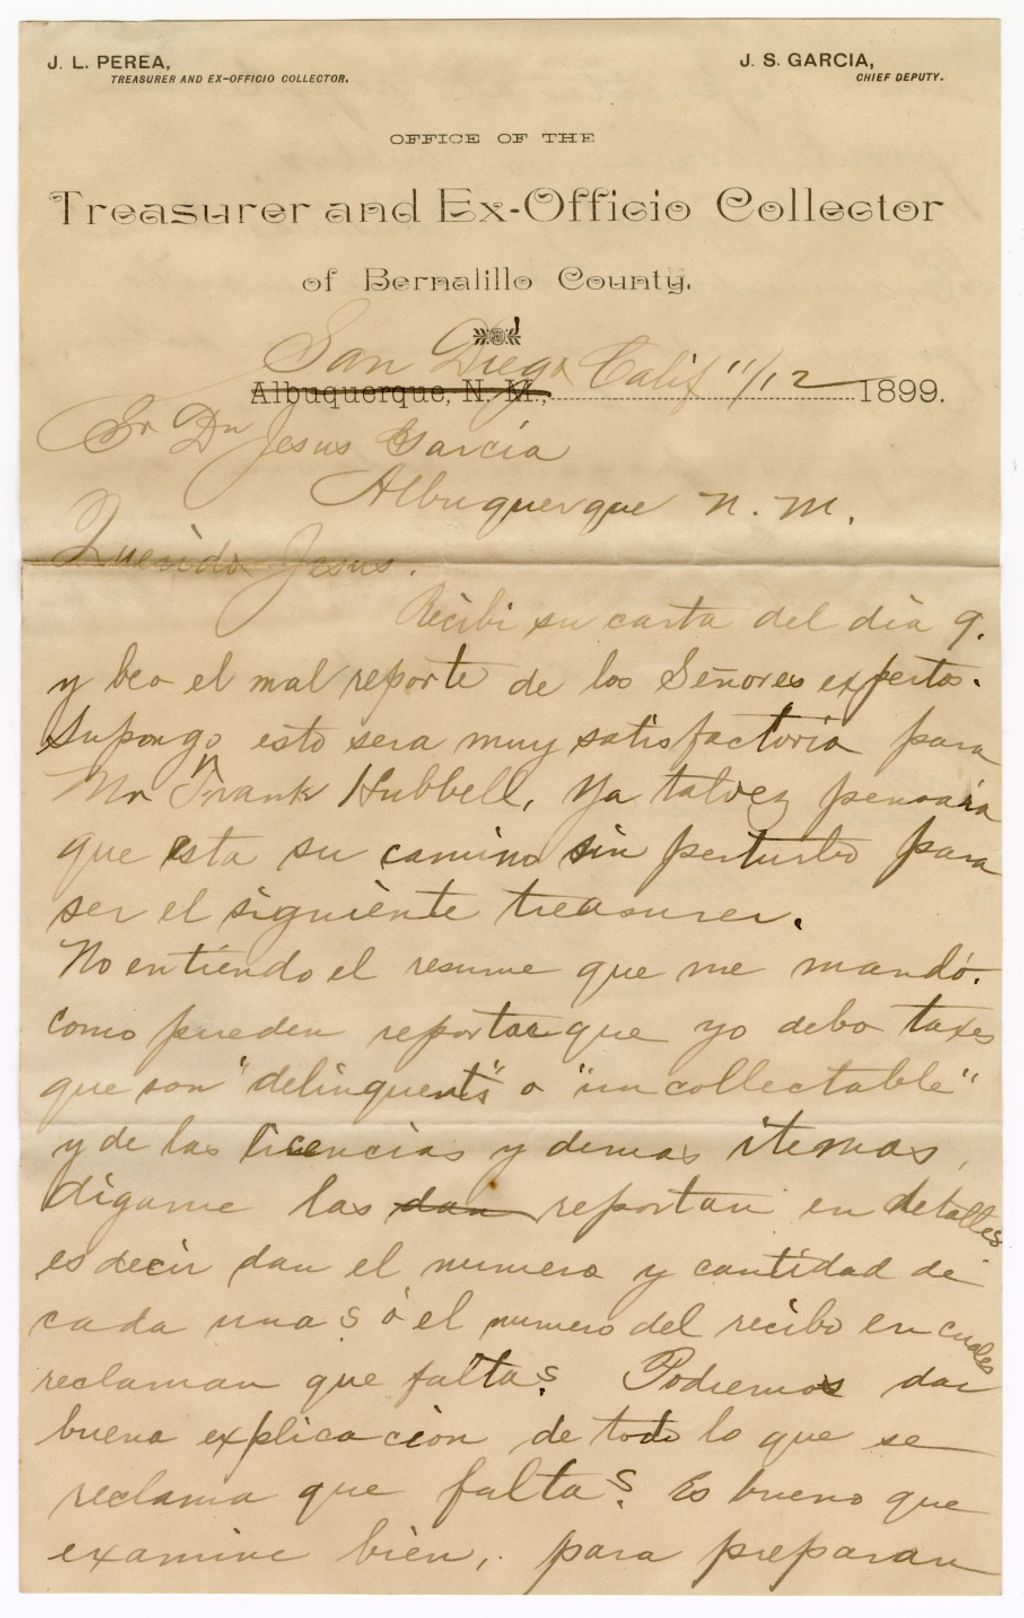 J. L. PEREA,
TREASURER AND EX-OFFICIO COLLECTOR.
J. S. GARCIA,
CHIEF DEPUTY.
OFFICE OF THE
Treasurer and Ex-Officio Collector
of Bernalillo County.
San Diego Calif 11/12
Albuquerque, N. M., 1899.
Sr Dn Jesus Garcia
Albuquerque N. M.
Querido Jesus.
Recibi su carta del dia 9.
y beo el mal reporte de los Señores expertos.
Supongo esto sera muy satisfactorio para
Mr Frank Hubbell, Ya talvez pensara
que esta su camino sin perturbo para
ser el siguiente treasurer.
No entiendo el resume que me mandó.
como pueden reportar que yo debo taxes
que son "delinquents" o "uncollectable"
y de las licencias y demas itemas,
digame las dan reportan en detalles
es decir dan el numero y cantidad de
cada una ? ó el numero del recibo en cuales
reclaman que falta ? Podremos dar
buena explicacion de todo lo que se
reclama que falta ? Es bueno que
examine bien, para preparan